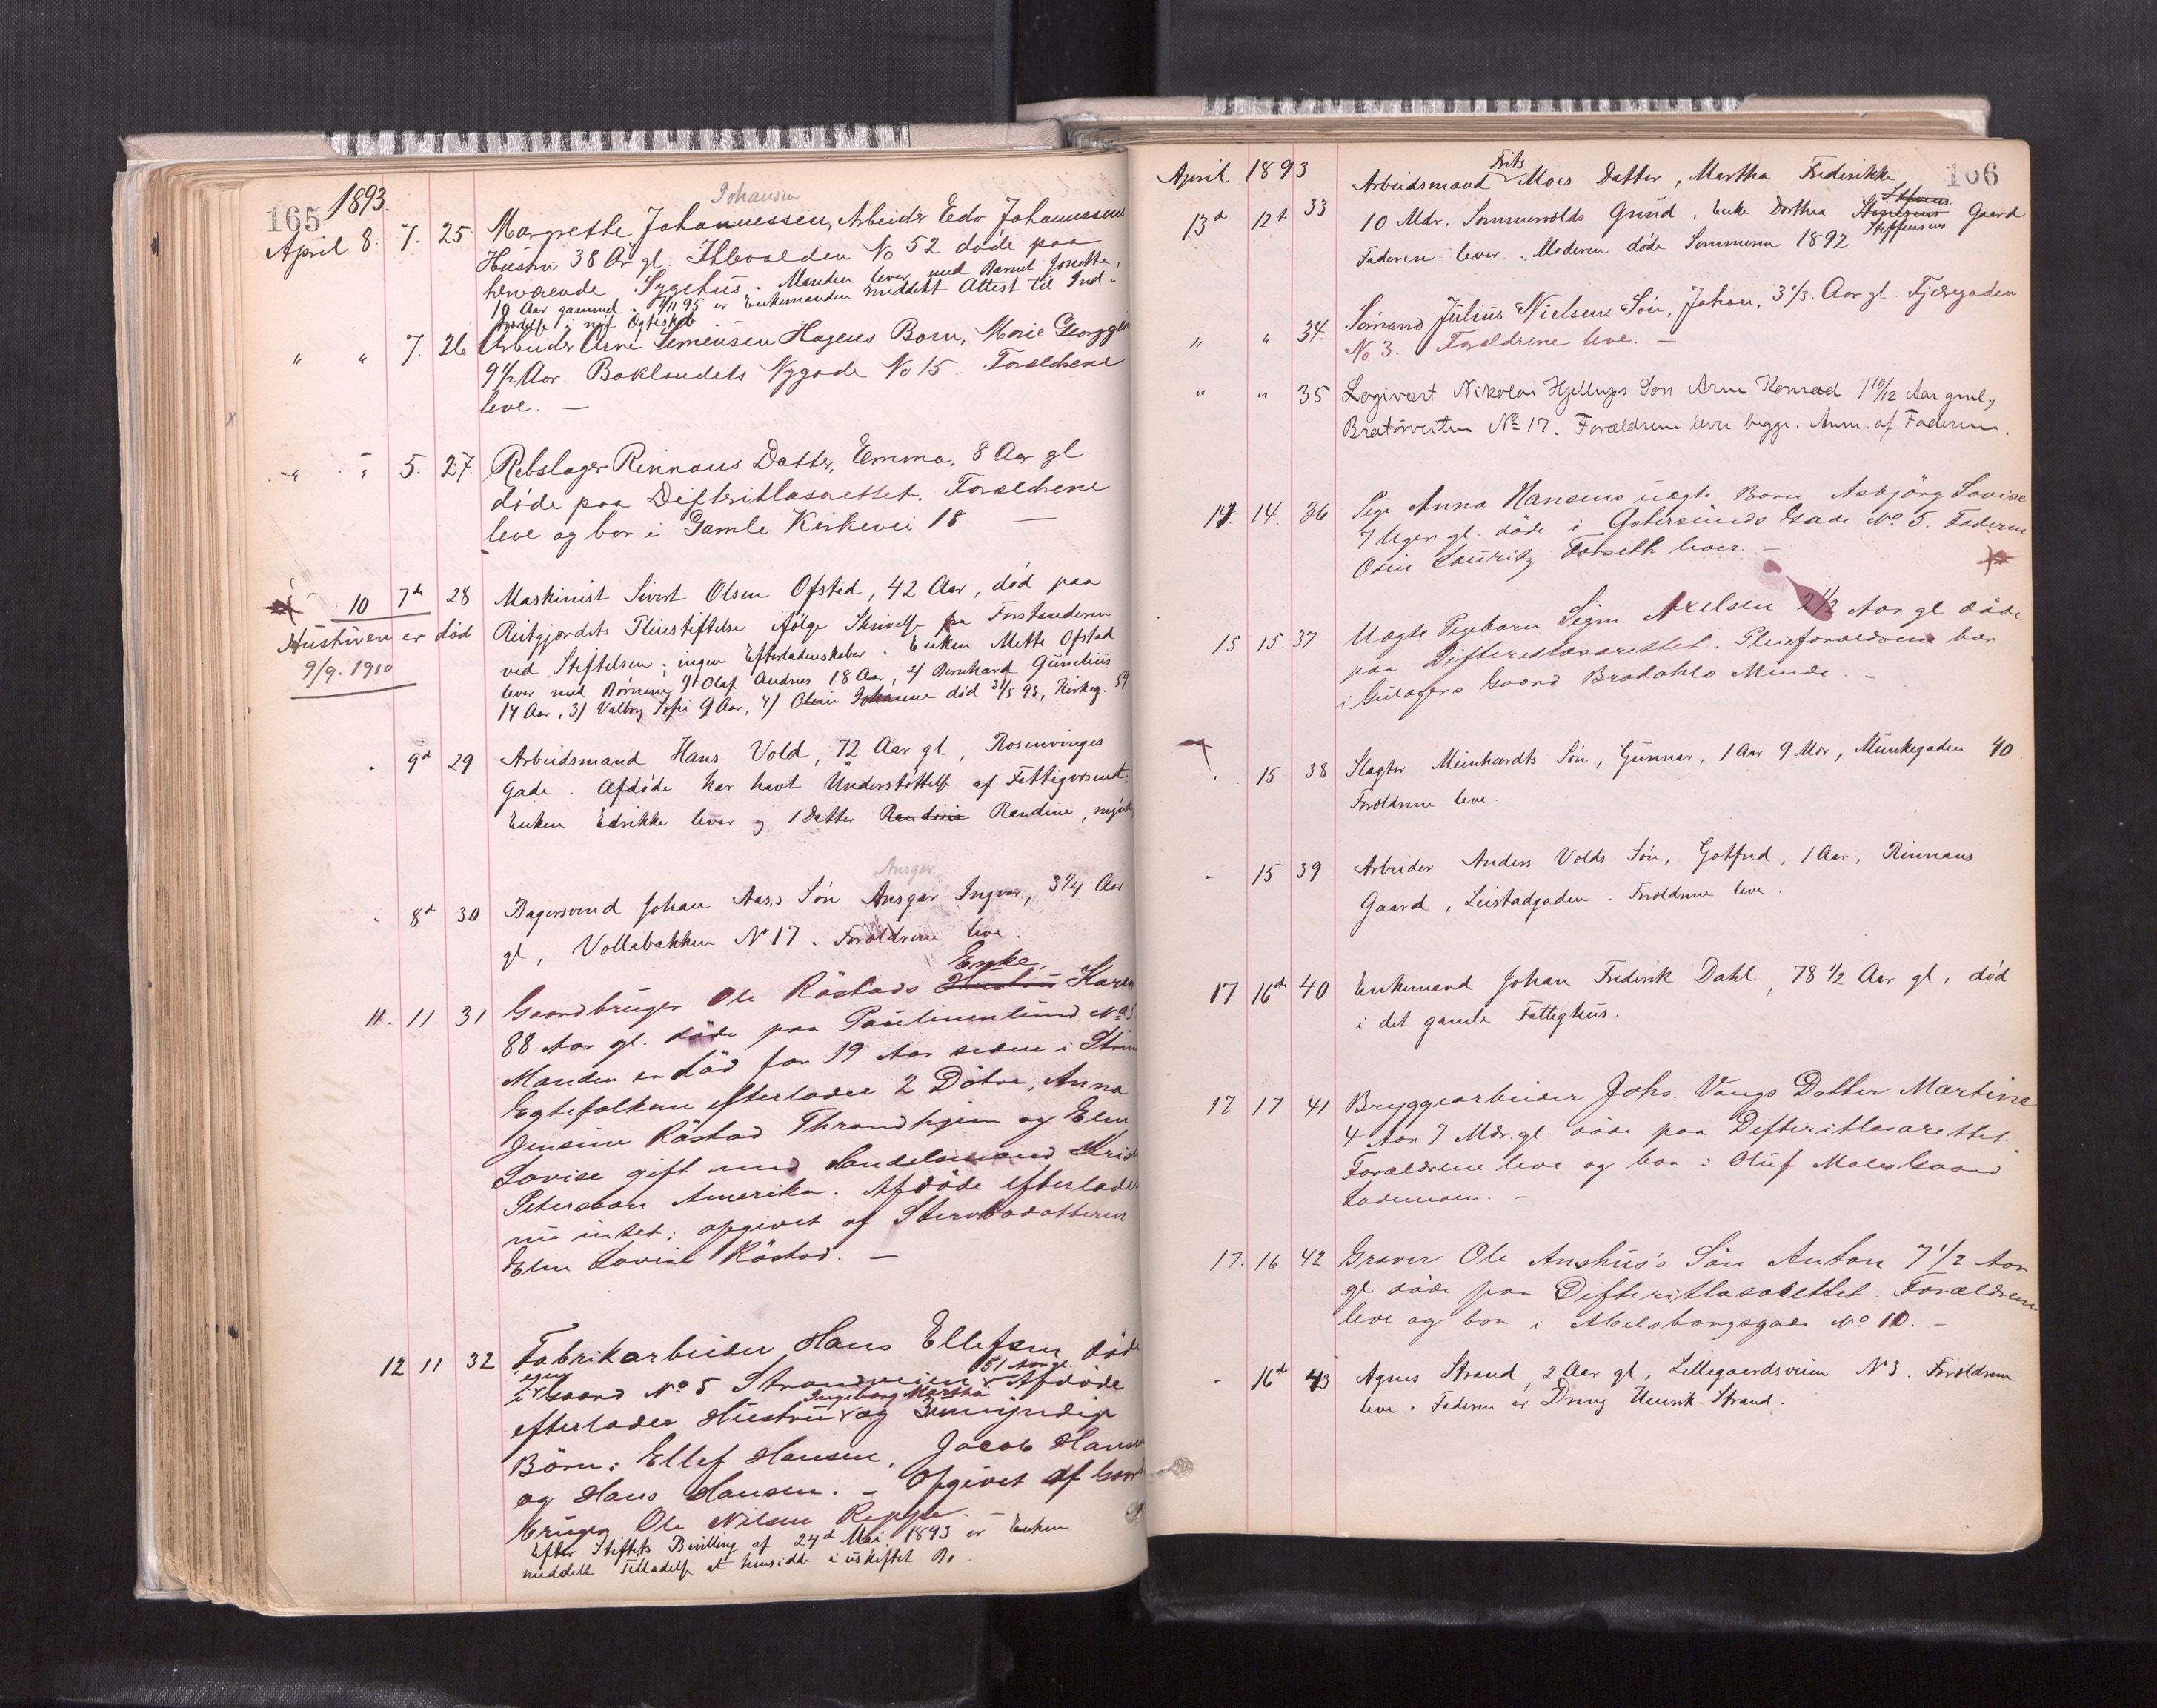 165 1893.
Johansen
April 8. 7. 25 Margrethe Johannessen, Arbeider Edv Johannessens
Hustru 38 Ar gl. Ihlevolden No 52 døde paa
herværende Sygehus. Manden lever med Barnet Josefthe,
10 Aar gammel. 1/11 95 er Enkemanden meddelt Attest til Ind-
trædelse i nyt Ægteskab
" " 7. 26 Arbeider Arne Simensen Hagens Barn, Marie Georgine
9 1/2 Aar. Baklandets Nygade No 15. Forældrene
leve. —
" " 5. 27. Rebslager Rinnaus Datter, Emma, 8 Aar gl.
døde paa Difteritlasarettet. Forældrene
leve og bor i Gamle Kirkevei 18. —
10 7de 28 Maskinist Sivert Olsen Ofstad, 42 Aar, død paa
Hustruen er død
9/9. 1910
Reitgjærdets Pleiestiftelse ifølge Skrivelse fra Forstanderen
ved Stiftelsen; ingen Efterladenskaber. Enken Mette Ofstad
lever med Børnene 1) Olaf Andreas 18 Aar, 2) Bernhard Gunelius
14 Aar, 3) Valborg Sofie 9 Aar, 4) Oluie Johanne død 31/5 93, Kirkeg. 59
" 9d 29 Arbeidsmand Hans Vold, 72 Aar gl, Rosenvinges
Gade. Afdøde har havt Understøttelse af Fattigvæsenet.
Enken Edrikke lever og 1 Datter Randine Randine, myndig
Ansgar
" 8d 30 Bagersvend Johan Aas's Søn Ansgar Ingvar, 3 1/4 Aar
gl, Vollabakken N 17. Forældrene leve.
Enke,
11. 11. 31 Gaardbruger Ole Röstads Hustru Karen
88 Aar gl. döde paa Paulinenlund No 5
Manden er död for 19 Aar siden i Strin
Egtefolkene efterlader 2 Dötre, Anna
Jensine Röstad Throndhjem og Elen
Lovise gift med Handelsmand Krist
Peterson Amerika. Afdöde efterlader
nu intet; opgivet af Sterbodatteren
Elen Lovise Röstad. —
12 11 32 Fabrikarbeider Hans Ellefsen döde
egen 51 Aar gl.
i Gaard No 5 Strandveien Afdöde
Ingeborg Martha
efterlader Hustru og 3 umyndige
Börn: Ellef Hansen, Jacob Hansen
og Hans Hansen. – Opgivet af Gaard
bruger Ole Nilsen Reppe. —
Efter Stiftets Bevilling af 24d Mai 1893 er Enken
meddelt Tilladelse at hensidde i uskiftet Bo.
April 1893
166
Frits
Arbeidsmand Moes Datter, Martha Frederikke
13d 12t 33 10 Mdr. Sommervolds Grund, Enke Dorthea Steffensens Gaard
Faderen lever. Moderen døde Sommeren 1892
" " 34. Sömand Julius Nielsens Sön, Johan, 3 1/3. Aar gl. Fjæregaden
No 3. Forældrene leve. —
" " 35 Logivært Nikolai Hjellups Søn Arne Konrad 1 10/12 Aar gml.,
Bratørveiten No 17. Forældrene lever begge. Anm. af Faderen.
14 14. 36 Pige Anna Hansens uægte Barn Asbjörg Lovise
7 Uger gl. döde i Østersunds Gade No 5. Faderen
Odin Lauritz Forseth lever. —
15 15. 37 Uægte Pigebarn Sigrn Axelsen 2 1/2 Aar gl döde
paa Difteritlasarettet. Pleieforældrene bor
i Gulagers Gaard Bradahls Minde. —
" 15 38 Slagter Meinhardts Søn, Gunnar, 1 Aar 9 Mdr, Munkegaden 40.
Forældrene leve.
" 15 39 Arbeider Anders Volds Søn, Gotfred, 1 Aar, Rinnans
Gaard, Leistadgaden. Forældrene leve.
17 16d 40 Enkemand Johan Frederik Dahl, 78 1/2 Aar gl, død
i det gamle Fattighus.
17 17 41 Bryggearbeider Johs. Vangs Datter Martine
4 Aar 7 Mdr. gl. döde paa Difteritlasarettet
Forældrene leve og bor i Oluf Moles Gaard
Lademoen. —
17. 16 42 Graver Ole Anshus's Sön Anton 7 1/2 Aar
gl döde paa Difteritlasarettet. Forældrene
leve og bor i Abelsborgsgade No 10. —
" 16d 43 Agnes Strand, 2 Aar gl, Lillegaardsveien N 3. Forældrene
leve. Faderen er Dreng Henrik Strand.